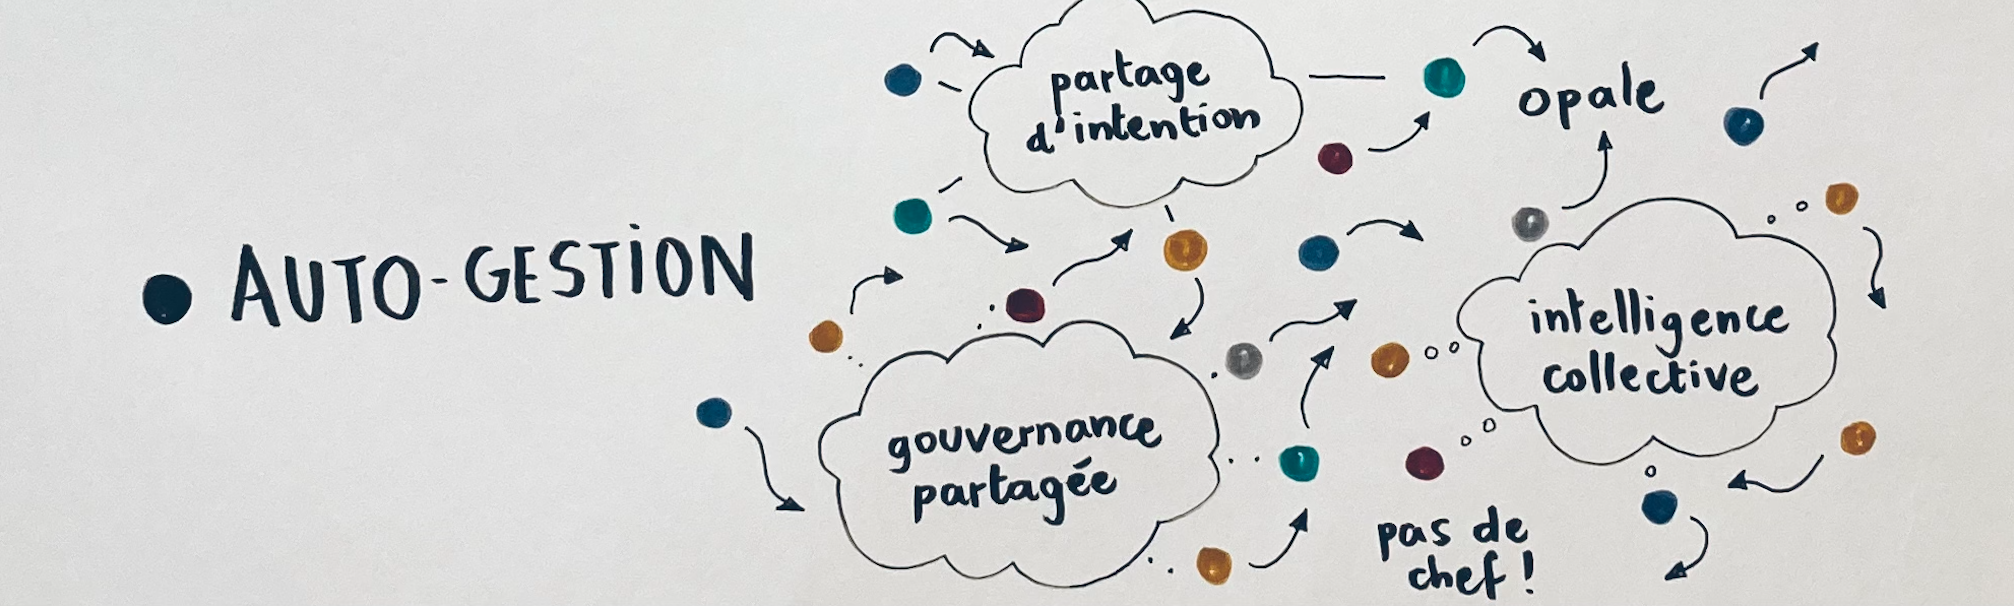 AUTO-GESTION
partage
d'intention
opale
gouvernance
partagée
intelligence
collective
pas de
chef !